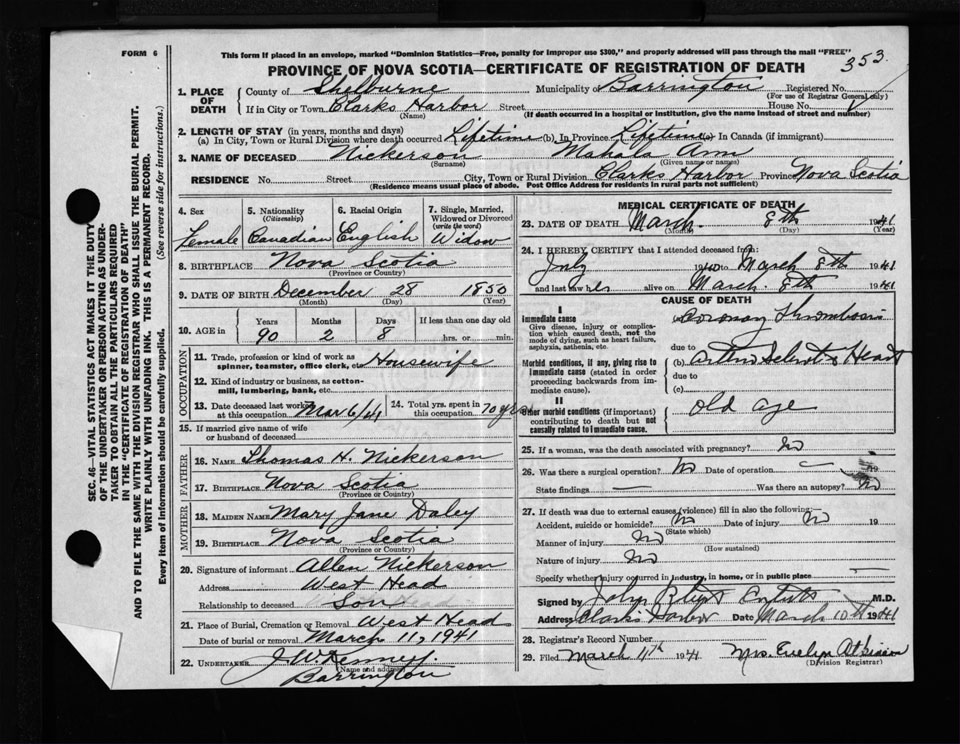 FORM 6
This form if placed in an envelope, marked "Dominion Statistics—Free, penalty for improper use $300," and properly addressed will pass through the mail "FREE"
PROVINCE OF NOVA SCOTIA—CERTIFICATE OF REGISTRATION OF DEATH
353
1. PLACE OF DEATH
County of Shelburne Municipality of Barrington Registered No.
(For use of Registrar General only)
If in City or Town Clarks Harbor Street House No.
(Name) (If death occurred in a hospital or institution, give the name instead of street and number)
2. LENGTH OF STAY (in years, months and days)
(a) In City, Town or Rural Division where death occurred Lifetime (b) In Province Lifetime (c) In Canada (if immigrant)
3. NAME OF DECEASED Nickerson Mahala Ann
(Surname) (Given name or names)
RESIDENCE No. Street City, Town or Rural Division Clarks Harbor Province Nova Scotia
(Residence means usual place of abode. Post Office Address for residents in rural parts not sufficient)
4. Sex
Female
5. Nationality
(Citizenship)
Canadian
6. Racial Origin
English
7. Single, Married, Widowed or Divorced
(write the word)
Widow
8. BIRTHPLACE Nova Scotia
(Province or Country)
9. DATE OF BIRTH December 28 1850
(Month) (Day) (Year)
10. AGE in
Years Months Days If less than one day old
90 2 8 hrs. or min.
OCCUPATION
11. Trade, profession or kind of work as spinner, teamster, office clerk, etc. Housewife
12. Kind of industry or business, as cotton-mill, lumbering, bank, etc.
13. Date deceased last worked at this occupation Mar 6/41
14. Total yrs. spent in this occupation 70 yrs
15. If married give name of wife or husband of deceased
FATHER
16. NAME Thomas H. Nickerson
17. BIRTHPLACE Nova Scotia
(Province or Country)
MOTHER
18. MAIDEN NAME Mary Jane Daley
19. BIRTHPLACE Nova Scotia
(Province or Country)
20. Signature of informant Allen Nickerson
Address West Head
Relationship to deceased Son
21. Place of Burial, Cremation or Removal West Head
Date of burial or removal March 11, 1941
22. UNDERTAKER J. W. Kenney
(Name and address)
Barrington
MEDICAL CERTIFICATE OF DEATH
23. DATE OF DEATH March 8th 1941
(Month) (Day) (Year)
24. I HEREBY CERTIFY that I attended deceased from:
July 1940 to March 8th 1941
and last saw alive on March 8th 1941
CAUSE OF DEATH
Immediate cause
Give disease, injury or complication which caused death, not the mode of dying, such as heart failure, asphyxia, asthenia, etc.
Coronary Thrombosis
due to
Morbid conditions, if any, giving rise to immediate cause (stated in order proceeding backwards from immediate cause).
(b) Heart
due to
(c)
II
Other morbid conditions (if important) contributing to death but not causally related to immediate cause.
Old age
25. If a woman, was the death associated with pregnancy? No
26. Was there a surgical operation? No Date of operation — 19
State findings — Was there an autopsy? No
27. If death was due to external causes (violence) fill in also the following:—
Accident, suicide or homicide? No Date of injury No 19
(State which)
Manner of injury No
(How sustained)
Nature of injury No
Specify whether injury occurred in industry, in home, or in public place
Signed by John M.D.
Address Clarks Harbor Date March 10th 1941
28. Registrar's Record Number
29. Filed March 11th 1941 Mrs. Evelyn Atkinson
(Division Registrar)
SEC. 46—VITAL STATISTICS ACT MAKES IT THE DUTY
OF THE UNDERTAKER OR PERSON ACTING AS UNDER-
TAKER TO OBTAIN ALL THE PARTICULARS REQUIRED
IN THE "CERTIFICATE OF REGISTRATION OF DEATH"
AND TO FILE THE SAME WITH THE DIVISION REGISTRAR WHO SHALL ISSUE THE BURIAL PERMIT.
WRITE PLAINLY WITH UNFADING INK. THIS IS A PERMANENT RECORD.
Every item of information should be carefully supplied. (See reverse side for instructions.)